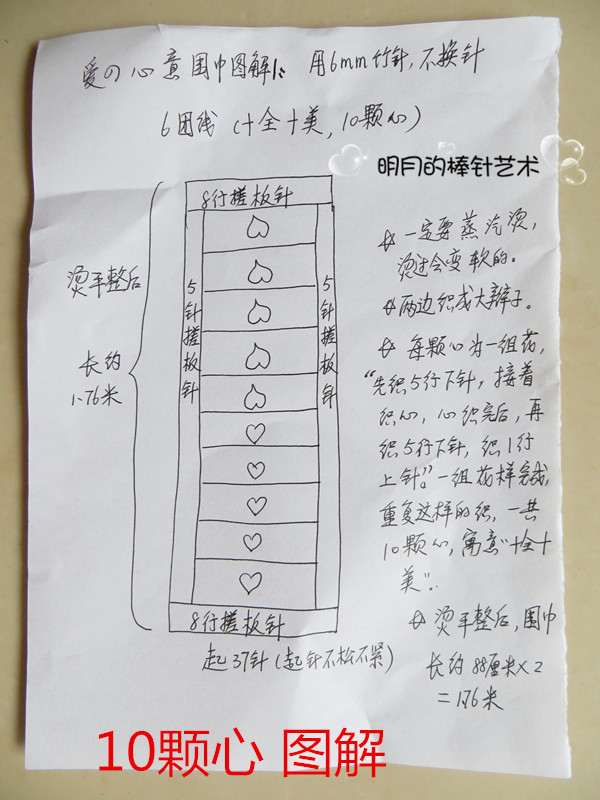 爱の心意围巾图解1: 用6mm竹针,不换针
6团线(十全十美,10颗心)
明月的棒针艺术
8行搓板针
5针搓板针
5针搓板针
8行搓板针
起37针(起针不松不紧)
烫平整后
长约
1.76米
一定要蒸汽烫,
烫过会变软的。
两边织成大辫子。
每颗心为一组花,
“先织5行下针,接着
织心,心织完后,再
织5行下针,织1行
上针”。一组花样完成,
重复这样的织,一共
10颗心,寓意“十全十
美”。
烫平整后,围巾
长约88厘米×2
=1.76米
10颗心 图解